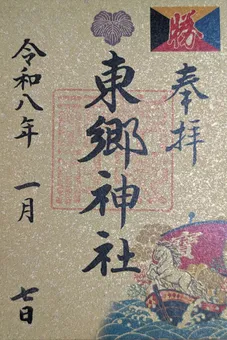 勝
奉拝
東郷神社
令和八年 一月 七日